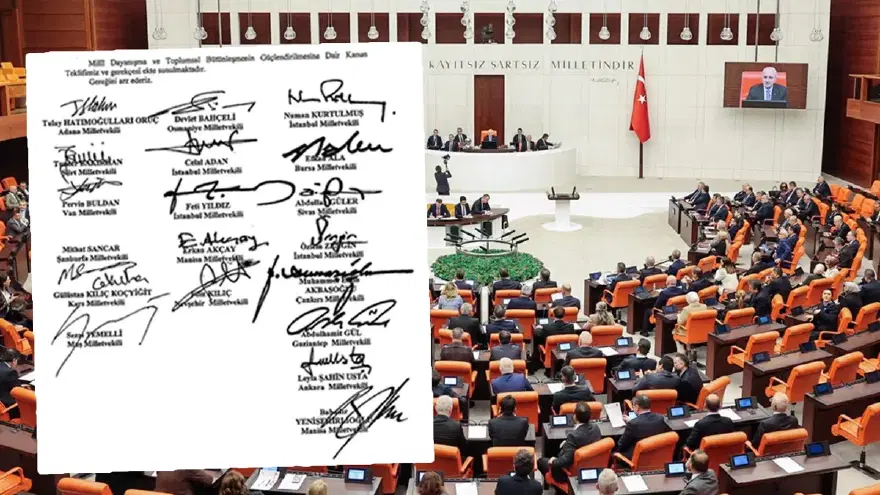 KAYITSIZ ŞARTSIZ MİLLETİNDİR
Millî Dayanışma ve Toplumsal Bütünleşmenin Güçlendirilmesine Dair Kanun
Teklifimiz ve gerekçesi ekte sunulmaktadır.
Gereğini arz ederiz.
Tülay HATIMOĞULLARI ORUÇ
Adana Milletvekili
Devlet BAHÇELİ
Osmaniye Milletvekili
Numan KURTULMUŞ
İstanbul Milletvekili
Siirt Milletvekili
Celal ADAN
İstanbul Milletvekili
Efkan ALA
Bursa Milletvekili
Pervin BULDAN
Van Milletvekili
Feti YILDIZ
İstanbul Milletvekili
Abdullah GÜLER
Sivas Milletvekili
Mithat SANCAR
Şanlıurfa Milletvekili
Erkan AKÇAY
Manisa Milletvekili
Özlem ZENGİN
İstanbul Milletvekili
Gülistan KILIÇ KOÇYİĞİT
Kars Milletvekili
KILIÇ
Nevşehir Milletvekili
Muhammet Emin
AKBAŞOĞLU
Çankırı Milletvekili
Sezai TEMELLİ
Muş Milletvekili
Abdulhamit GÜL
Gaziantep Milletvekili
Leyla ŞAHİN USTA
Ankara Milletvekili
Bahadır
YENİŞEHİRLİOĞLU
Manisa Milletvekili